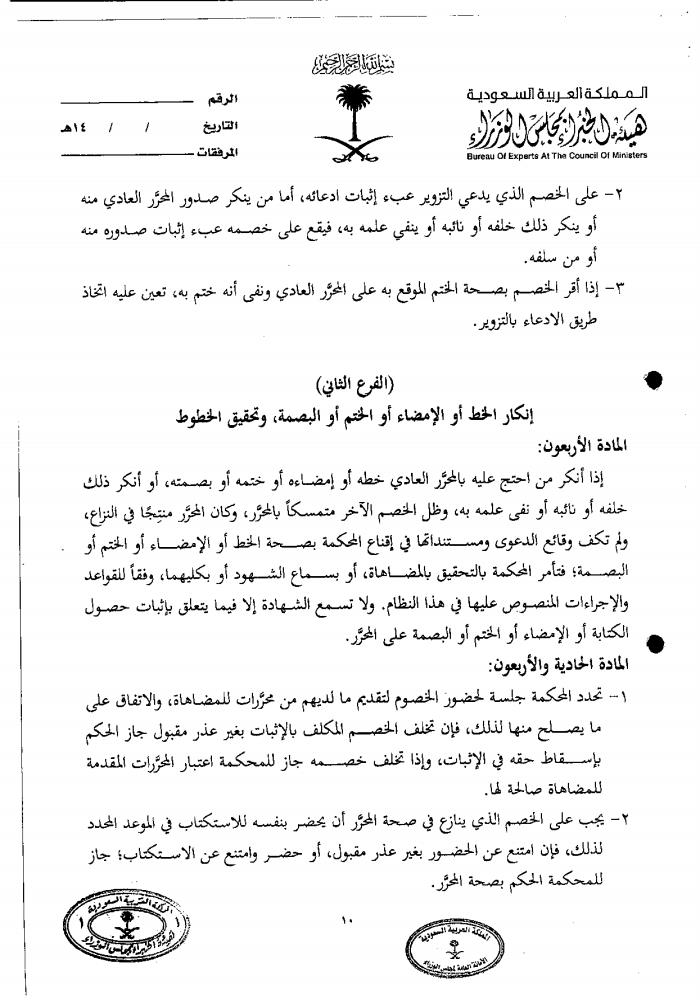 بسم الله الرحمن الرحيم
المملكة العربية السعودية
هيئة الخبراء بمجلس الوزراء
Bureau Of Experts At The Council Of Ministers
الرقم
التاريخ / / ١٤هـ
المرفقات
٢- على الخصم الذي يدعي التزوير عبء إثبات ادعائه، أما من ينكر صدور المحرَّر العادي منه
أو ينكر ذلك خلفه أو نائبه أو ينفي علمه به، فيقع على خصمه عبء إثبات صدوره منه
أو من سلفه.
٣- إذا أقر الخصم بصحة الختم الموقع به على المحرَّر العادي ونفى أنه ختم به، تعين عليه اتخاذ
طريق الادعاء بالتزوير.
(الفرع الثاني)
إنكار الخط أو الإمضاء أو الختم أو البصمة، وتحقيق الخطوط
المادة الأربعون:
إذا أنكر من احتج عليه بالمحرَّر العادي خطه أو إمضاءه أو ختمه أو بصمته، أو أنكر ذلك
خلفه أو نائبه أو نفى علمه به، وظل الخصم الآخر متمسكاً بالمحرَّر، وكان المحرَّر منتِجًا في النزاع،
ولم تكف وقائع الدعوى ومستنداتها في إقناع المحكمة بصحة الخط أو الإمضاء أو الختم أو
البصمة؛ فتأمر المحكمة بالتحقيق بالمضاهاة، أو بسماع الشهود أو بكليهما، وفقاً للقواعد
والإجراءات المنصوص عليها في هذا النظام. ولا تسمع الشهادة إلا فيما يتعلق بإثبات حصول
الكتابة أو الإمضاء أو الختم أو البصمة على المحرَّر.
المادة الحادية والأربعون:
١- تحدد المحكمة جلسة لحضور الخصوم لتقديم ما لديهم من محرَّرات للمضاهاة، والاتفاق على
ما يصلح منها لذلك، فإن تخلف الخصم المكلف بالإثبات بغير عذر مقبول جاز الحكم
بإسقاط حقه في الإثبات، وإذا تخلف خصمه جاز للمحكمة اعتبار المحرَّرات المقدمة
للمضاهاة صالحة لها.
٢- يجب على الخصم الذي ينازع في صحة المحرَّر أن يحضر بنفسه للاستكتاب في الموعد المحدد
لذلك، فإن امتنع عن الحضور بغير عذر مقبول، أو حضر وامتنع عن الاستكتاب؛ جاز
للمحكمة الحكم بصحة المحرَّر.
١٠
المملكة العربية السعودية
هيئة الخبراء بمجلس الوزراء
المملكة العربية السعودية
الأمانة العامة لمجلس الوزراء